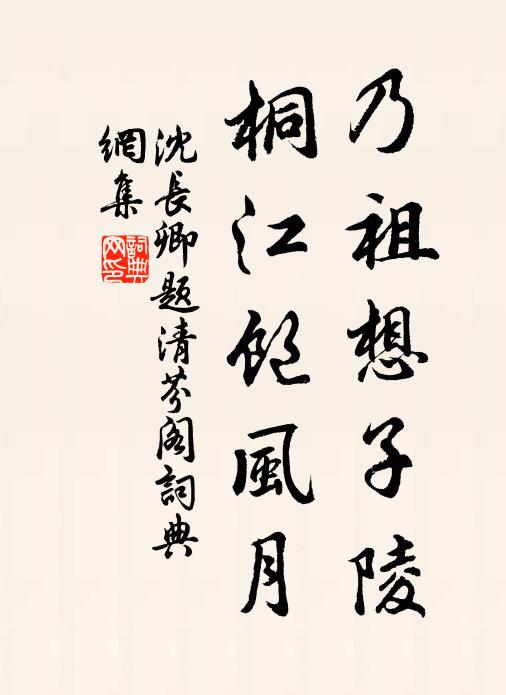 乃祖想子陵
桐江飽風月
沈長卿題清芬阁詞典
網集
詞典網印